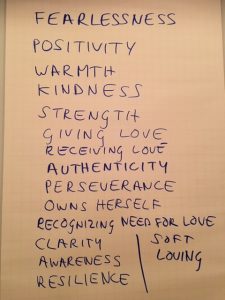 FEARLESSNESS
POSITIVITY
WARMTH
KINDNESS
STRENGTH
GIVING LOVE
RECEIVING LOVE
AUTHENTICITY
PERSEVERANCE
OWNS HERSELF
RECOGNIZING NEED FOR LOVE
CLARITY
AWARENESS
RESILIENCE
SOFT
LOVING